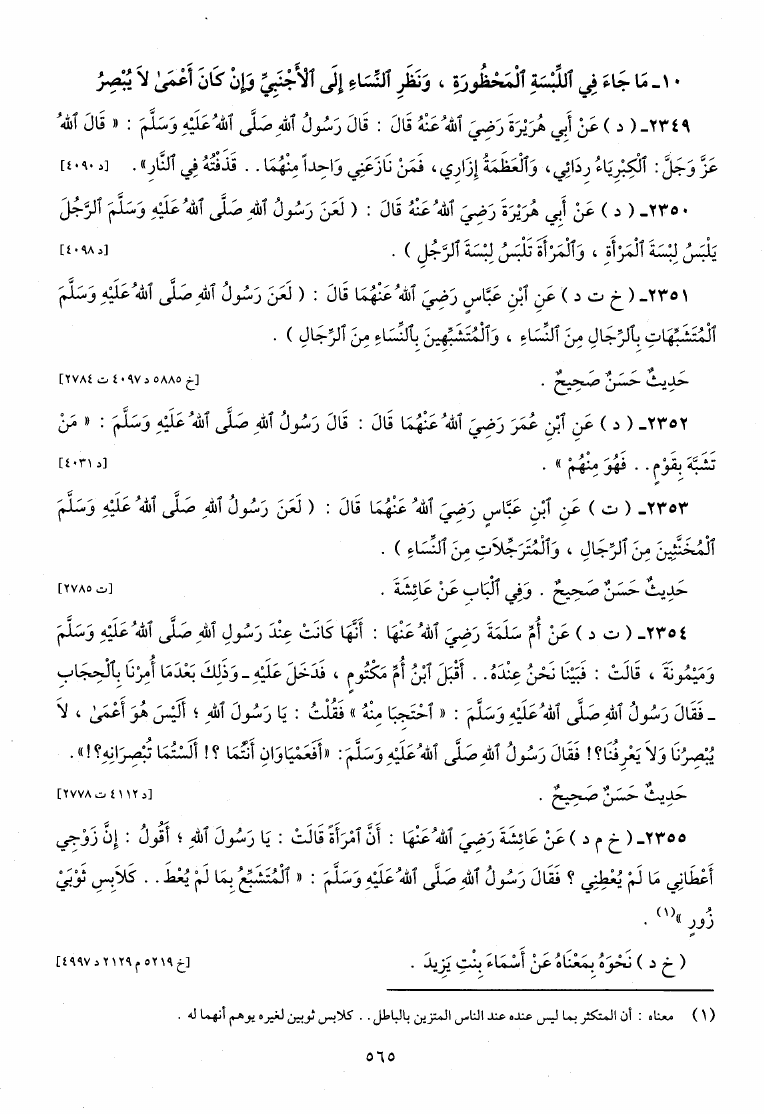 ١٠ـ مَا جَاءَ فِي ٱللِّبْسَةِ ٱلْمَحْظُورَةِ ، وَنَظَرِ ٱلنِّسَاءِ إِلَى ٱلْأَجْنَبِيِّ وَإِنْ كَانَ أَعْمَىٰ لاَ يُبْصِرُ
٢٣٤٩ـ ( د ) عَنْ أَبِي هُرَيْرَةَ رَضِيَ ٱللهُ عَنْهُ قَالَ : قَالَ رَسُولُ ٱللهِ صَلَّى ٱللهُ عَلَيْهِ وَسَلَّمَ : « قَالَ ٱللهُ
عَزَّ وَجَلَّ : ٱلْكِبْرِيَاءُ رِدَائِي، وَٱلْعَظَمَةُ إِزَارِي، فَمَنْ نَازَعَنِي وَاحِداً مِنْهُمَا . . قَذَفْتُهُ فِي ٱلنَّارِ» . [د ٤٠٩٠]
٢٣٥٠ـ ( د ) عَنْ أَبِي هُرَيْرَةَ رَضِيَ ٱللهُ عَنْهُ قَالَ : ( لَعَنَ رَسُولُ ٱللهِ صَلَّى ٱللهُ عَلَيْهِ وَسَلَّمَ ٱلرَّجُلَ
يَلْبَسُ لِبْسَةَ ٱلْمَرْأَةِ ، وَٱلْمَرْأَةَ تَلْبَسُ لِبْسَةَ ٱلرَّجُلِ ) . [د ٤٠٩٨]
٢٣٥١ـ ( خ ت د ) عَنِ ٱبْنِ عَبَّاسٍ رَضِيَ ٱللهُ عَنْهُمَا قَالَ : ( لَعَنَ رَسُولُ ٱللهِ صَلَّى ٱللهُ عَلَيْهِ وَسَلَّمَ
ٱلْمُتَشَبِّهَاتِ بِٱلرِّجَالِ مِنَ ٱلنِّسَاءِ ، وَٱلْمُتَشَبِّهِينَ بِٱلنِّسَاءِ مِنَ ٱلرِّجَالِ ) .
حَدِيثٌ حَسَنٌ صَحِيحٌ . [خ ٥٨٨٥ د ٤٠٩٧ ت ٢٧٨٤]
٢٣٥٢ـ ( د ) عَنِ ٱبْنِ عُمَرَ رَضِيَ ٱللهُ عَنْهُمَا قَالَ : قَالَ رَسُولُ ٱللهِ صَلَّى ٱللهُ عَلَيْهِ وَسَلَّمَ : « مَنْ
تَشَبَّهَ بِقَوْمٍ . . فَهُوَ مِنْهُمْ » . [د ٤٠٣١]
٢٣٥٣ـ ( ت ) عَنِ ٱبْنِ عَبَّاسٍ رَضِيَ ٱللهُ عَنْهُمَا قَالَ : ( لَعَنَ رَسُولُ ٱللهِ صَلَّى ٱللهُ عَلَيْهِ وَسَلَّمَ
ٱلْمُخَنَّثِينَ مِنَ ٱلرِّجَالِ ، وَٱلْمُتَرَجِّلاَتِ مِنَ ٱلنِّسَاءِ ) .
حَدِيثٌ حَسَنٌ صَحِيحٌ . وَفِي ٱلْبَابِ عَنْ عَائِشَةَ . [ت ٢٧٨٥]
٢٣٥٤ـ ( ت د ) عَنْ أُمِّ سَلَمَةَ رَضِيَ ٱللهُ عَنْهَا : أَنَّهَا كَانَتْ عِنْدَ رَسُولِ ٱللهِ صَلَّى ٱللهُ عَلَيْهِ وَسَلَّمَ
وَمَيْمُونَةَ ، قَالَتْ : فَبَيْنَا نَحْنُ عِنْدَهُ . . أَقْبَلَ ٱبْنُ أُمِّ مَكْتُومٍ ، فَدَخَلَ عَلَيْهِ ـ وَذَلِكَ بَعْدَمَا أُمِرْنَا بِٱلْحِجَابِ
ـ فَقَالَ رَسُولُ ٱللهِ صَلَّى ٱللهُ عَلَيْهِ وَسَلَّمَ : « ٱحْتَجِبَا مِنْهُ » فَقُلْتُ : يَا رَسُولَ ٱللهِ ؛ أَلَيْسَ هُوَ أَعْمَىٰ ، لاَ
يُبْصِرُنَا وَلاَ يَعْرِفُنَا؟! فَقَالَ رَسُولُ ٱللهِ صَلَّى ٱللهُ عَلَيْهِ وَسَلَّمَ : «أَفَعَمْيَاوَانِ أَنْتُمَا ؟! أَلَسْتُمَا تُبْصِرَانِهِ؟!» .
حَدِيثٌ حَسَنٌ صَحِيحٌ . [د ٤١١٢ ت ٢٧٧٨]
٢٣٥٥ـ ( خ م د ) عَنْ عَائِشَةَ رَضِيَ ٱللهُ عَنْهَا : أَنَّ ٱمْرَأَةً قَالَتْ : يَا رَسُولَ ٱللهِ ؛ أَقُولُ : إِنَّ زَوْجِي
أَعْطَانِي مَا لَمْ يُعْطِنِي ؟ فَقَالَ رَسُولُ ٱللهِ صَلَّى ٱللهُ عَلَيْهِ وَسَلَّمَ : « ٱلْمُتَشَبِّعُ بِمَا لَمْ يُعْطَ . . كَلاَبِسِ ثَوْبَيْ
زُورٍ »(١) .
( خ د ) نَحْوَهُ بِمَعْنَاهُ عَنْ أَسْمَاءَ بِنْتِ يَزِيدَ . [خ ٥٢١٩ م ٢١٢٩ د ٤٩٩٧]
(١) معناه : أن المتكثر بما ليس عنده عند الناس المتزين بالباطل . . كلابس ثوبين لغيره يوهم أنهما له .
٥٦٥